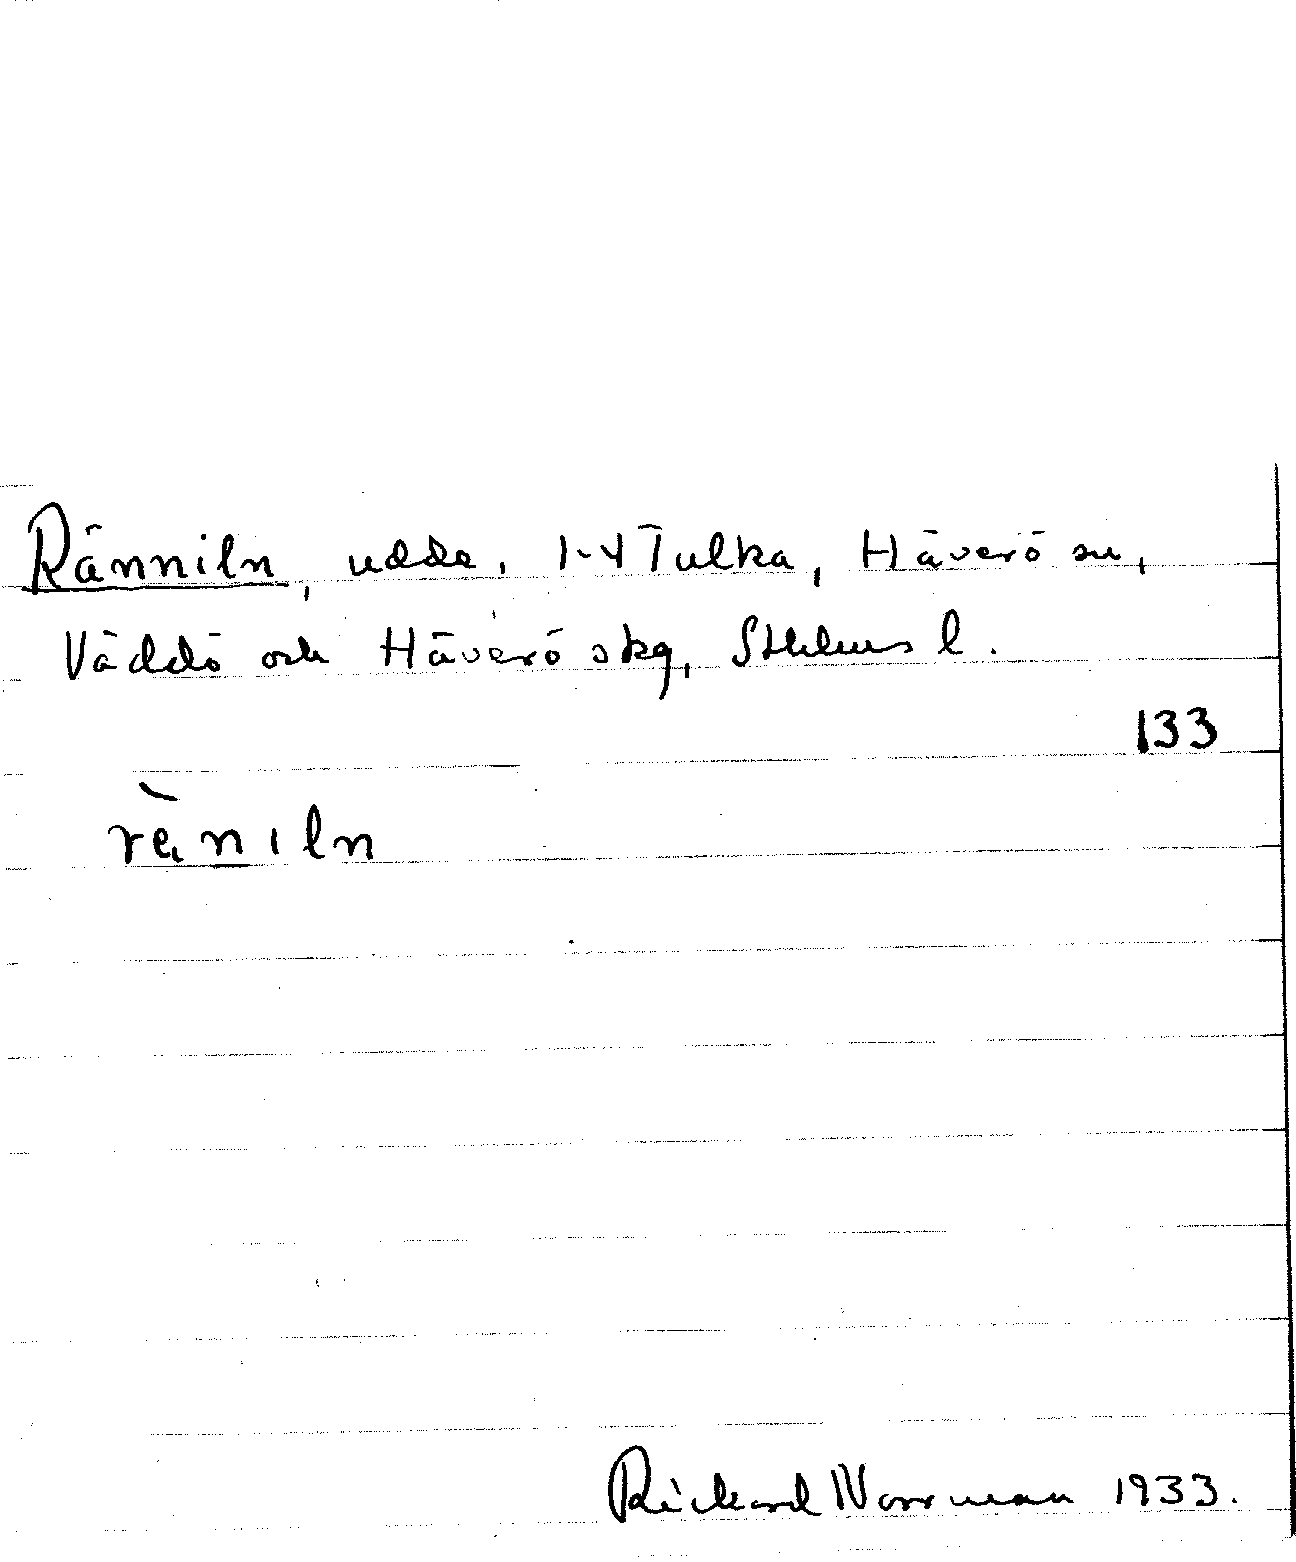 Ränniln, udde, 1-4 Tulka, Häverö sn,
Väddö och Häverö skg, Sthlms l.
133
rä̀niln
Rickard Norrman 1933.